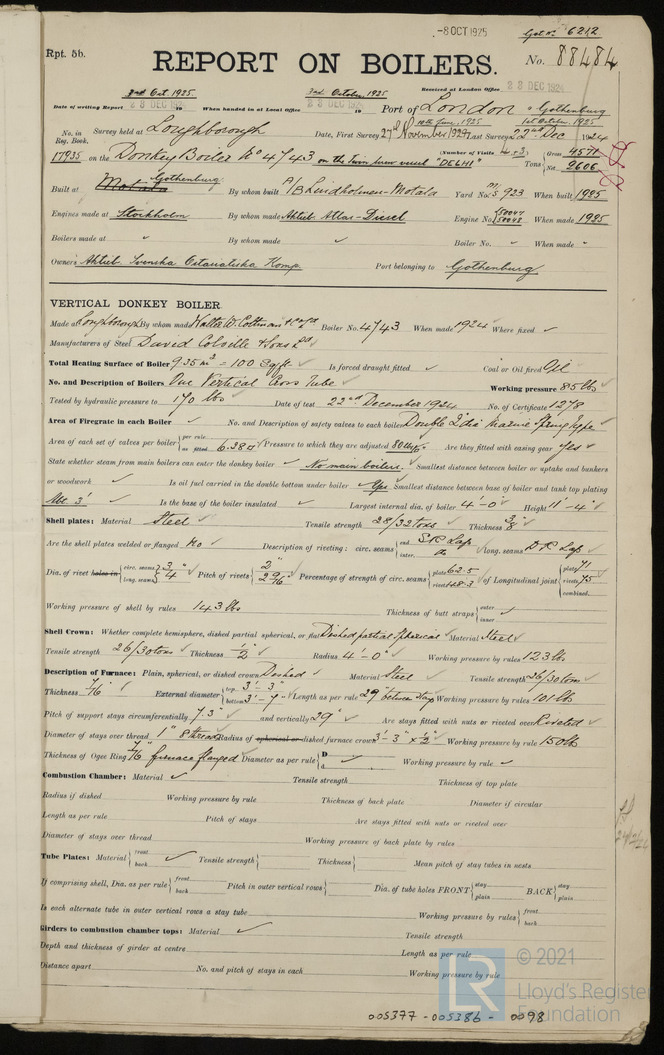 -8 OCT 1925
Got. No 6212
Rpt. 5b.
REPORT ON BOILERS.
No. 88484
3rd Oct. 1925
3rd October, 1925
Received at London Office 23 DEC 1924
Date of writing Report 23 DEC 1924 19 When handed in at Local Office 23 DEC 1924 19 Port of London & Gothenburg
No. in Survey held at Loughborough Date, First Survey 27th November 1924 Last Survey 22nd Dec 1924
10th June, 1925 1st October, 1925
Reg. Book. (Number of Visits 4+3) Gross 4571
17935 on the Donkey Boiler No 4743 on the twin screw vessel "DELHI" Tons Net 2606
Built at Motala Gothenburg By whom built A/B Lindholmen-Motala Yard No. 923 When built 1925
Engines made at Stockholm By whom made Aktieb. Atlas-Diesel Engine No. 50047 50048 When made 1925
Boilers made at " By whom made ✓ Boiler No. " When made "
Owners Aktieb. Svenska Ostasiatiska Komp. Port belonging to Gothenburg
VERTICAL DONKEY BOILER.
Made at Loughborough By whom made Walter W. Coltman & Co Ltd Boiler No. 4743 When made 1924 Where fixed ✓
Manufacturers of Steel David Colville & Sons Ld
Total Heating Surface of Boiler 9.35 m² = 100 Sq ft. Is forced draught fitted ✓ Coal or Oil fired Oil
No. and Description of Boilers One Vertical Cross Tube Working pressure 85 lbs
Tested by hydraulic pressure to 170 lbs Date of test 22nd December 1924 No. of Certificate 1278
Area of Firegrate in each Boiler ✓ No. and Description of safety valves to each boiler Double 2" dia Marine Spring Type
Area of each set of valves per boiler per rule as fitted 6.28" Pressure to which they are adjusted 80 lbs Are they fitted with easing gear Yes
State whether steam from main boilers can enter the donkey boiler ✓ No main boilers. Smallest distance between boiler or uptake and bunkers
or woodwork ✓ Is oil fuel carried in the double bottom under boiler Yes Smallest distance between base of boiler and tank top plating
Abt. 3' Is the base of the boiler insulated ✓ Largest internal dia. of boiler 4'-0" Height 11'-4"
Shell plates: Material Steel Tensile strength 28/32 tons Thickness 3/8"
Are the shell plates welded or flanged No Description of riveting: circ. seams end S R Lap inter. do long. seams D R Lap
Dia. of rivet holes in circ. seams 3/4" long. seams Pitch of rivets 2" 2 9/16" Percentage of strength of circ. seams plate 62.5 rivet 48.3 of Longitudinal joint plate 71 rivets 75 combined
Working pressure of shell by rules 143 lbs Thickness of butt straps outer inner ✓
Shell Crown: Whether complete hemisphere, dished partial spherical, or flat Dished partial spherical Material Steel
Tensile strength 26/30 tons Thickness 1/2" Radius 4'-0" Working pressure by rules 123 lbs
Description of Furnace: Plain, spherical, or dished crown Dished Material Steel Tensile strength 26/30 tons
Thickness 7/16" External diameter top 3'-3" bottom 3'-7" Length as per rule 29" between stays Working pressure by rules 101 lbs
Pitch of support stays circumferentially 7.3" and vertically 29" Are stays fitted with nuts or riveted over Riveted
Diameter of stays over thread 1" 8 threads Radius of spherical or dished furnace crown 3'-3" x 1/2" Working pressure by rule 150 lbs
Thickness of Ogee Ring 7/16" furnace flanged Diameter as per rule D d Working pressure by rule ✓
Combustion Chamber: Material ✓ Tensile strength Thickness of top plate
Radius if dished Working pressure by rule Thickness of back plate Diameter if circular
Length as per rule Pitch of stays Are stays fitted with nuts or riveted over
Diameter of stays over thread Working pressure of back plate by rules
Tube Plates: Material front back ✓ Tensile strength Thickness Mean pitch of stay tubes in nests
If comprising shell, Dia. as per rule front back Pitch in outer vertical rows Dia. of tube holes FRONT stay plain BACK stay plain
Is each alternate tube in outer vertical rows a stay tube Working pressure by rules front back
Girders to combustion chamber tops: Material ✓ Tensile strength
Depth and thickness of girder at centre Length as per rule
Distance apart No. and pitch of stays in each Working pressure by rule
© 2021
LR Lloyd's Register
Foundation
005377-005386-0098